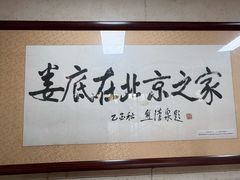 娄底在北京之家
乙丑秋